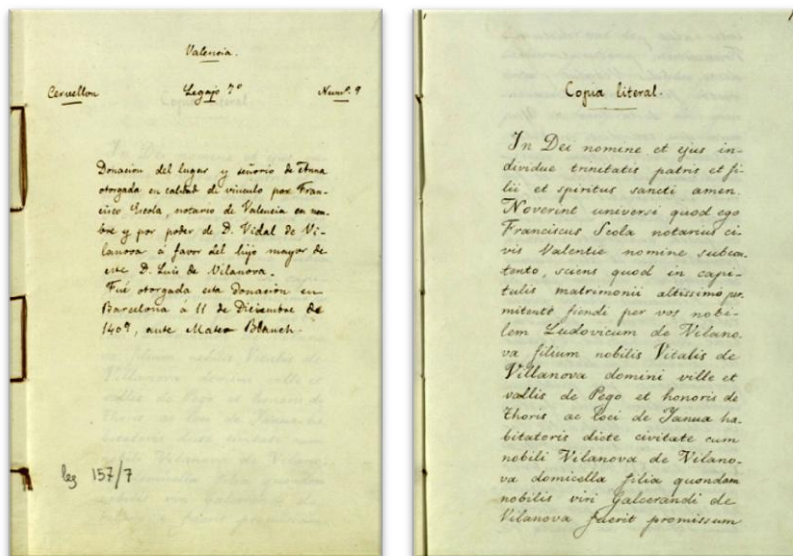 Valencia.
Cervellon Legajo 7º Numº. 9
Donacion del lugar y señorio de Anna
otorgada en calidad de vinculo por Fran-
cisco Escola, notario de Valencia en nom-
bre y por poder de D. Vidal de Vi-
lanova á favor del hijo mayor de
este D. Luis de Vilanova.
Fué otorgada esta donacion en
Barcelona á 11 de Diciembre de
1407, ante Mateo Blanch.
leg 157/7
Copia literal.
In Dei nomine et ejus in-
dividue trinitatis patris et fi-
lii et spiritus sancti amen.
Noverint universi quod ego
Franciscus Scola notarius ci-
vis Valentie nomine subcon-
tento, sciens quod in capi-
tulis matrimonii altissimo per-
mitente fiendi per vos nobi-
lem Ludovicum de Vilano-
va filium nobilis Vitalis de
Villanova domini ville et
vallis de Pego et honoris de
Thoris ac loci de Janua ha-
bitatoris dicte civitate cum
nobili Vilanova de Vilano-
va domicella filia quondam
nobilis viri Galcerandi de
Vilanova fuerit promissum